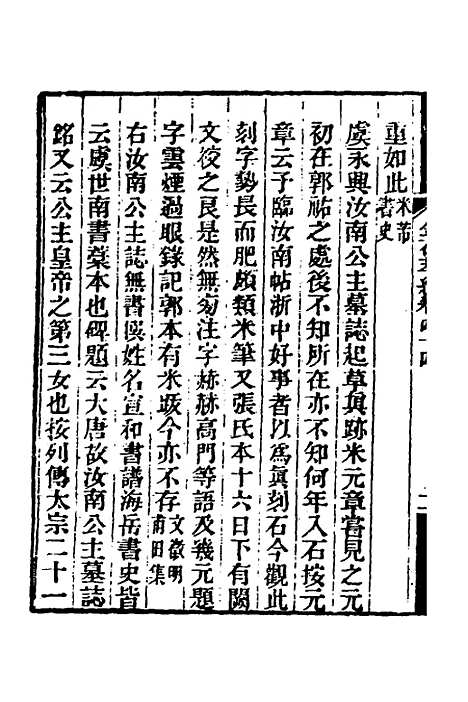 重如此米芾書史
虞永興汝南公主墓誌起草眞跡米元章嘗見之元
初在郭祐之處後不知所在亦不知何年入石按元
章云予臨汝南帖浙中好事者以爲眞刻石今觀此
刻字勢長而肥頗類米筆又張氏本十六日下有闕
文校之良是然無旁注字赫赫高門等語及幾元題
字雲煙過眼錄記郭本有米䟦今亦不存文徵明甫田集
右汝南公主誌無書譔姓名宣和書譜海岳書史皆
云虞世南書藁本也碑題云大唐故汝南公主墓誌
銘又云公主皇帝之第三女也按列傳太宗二十一